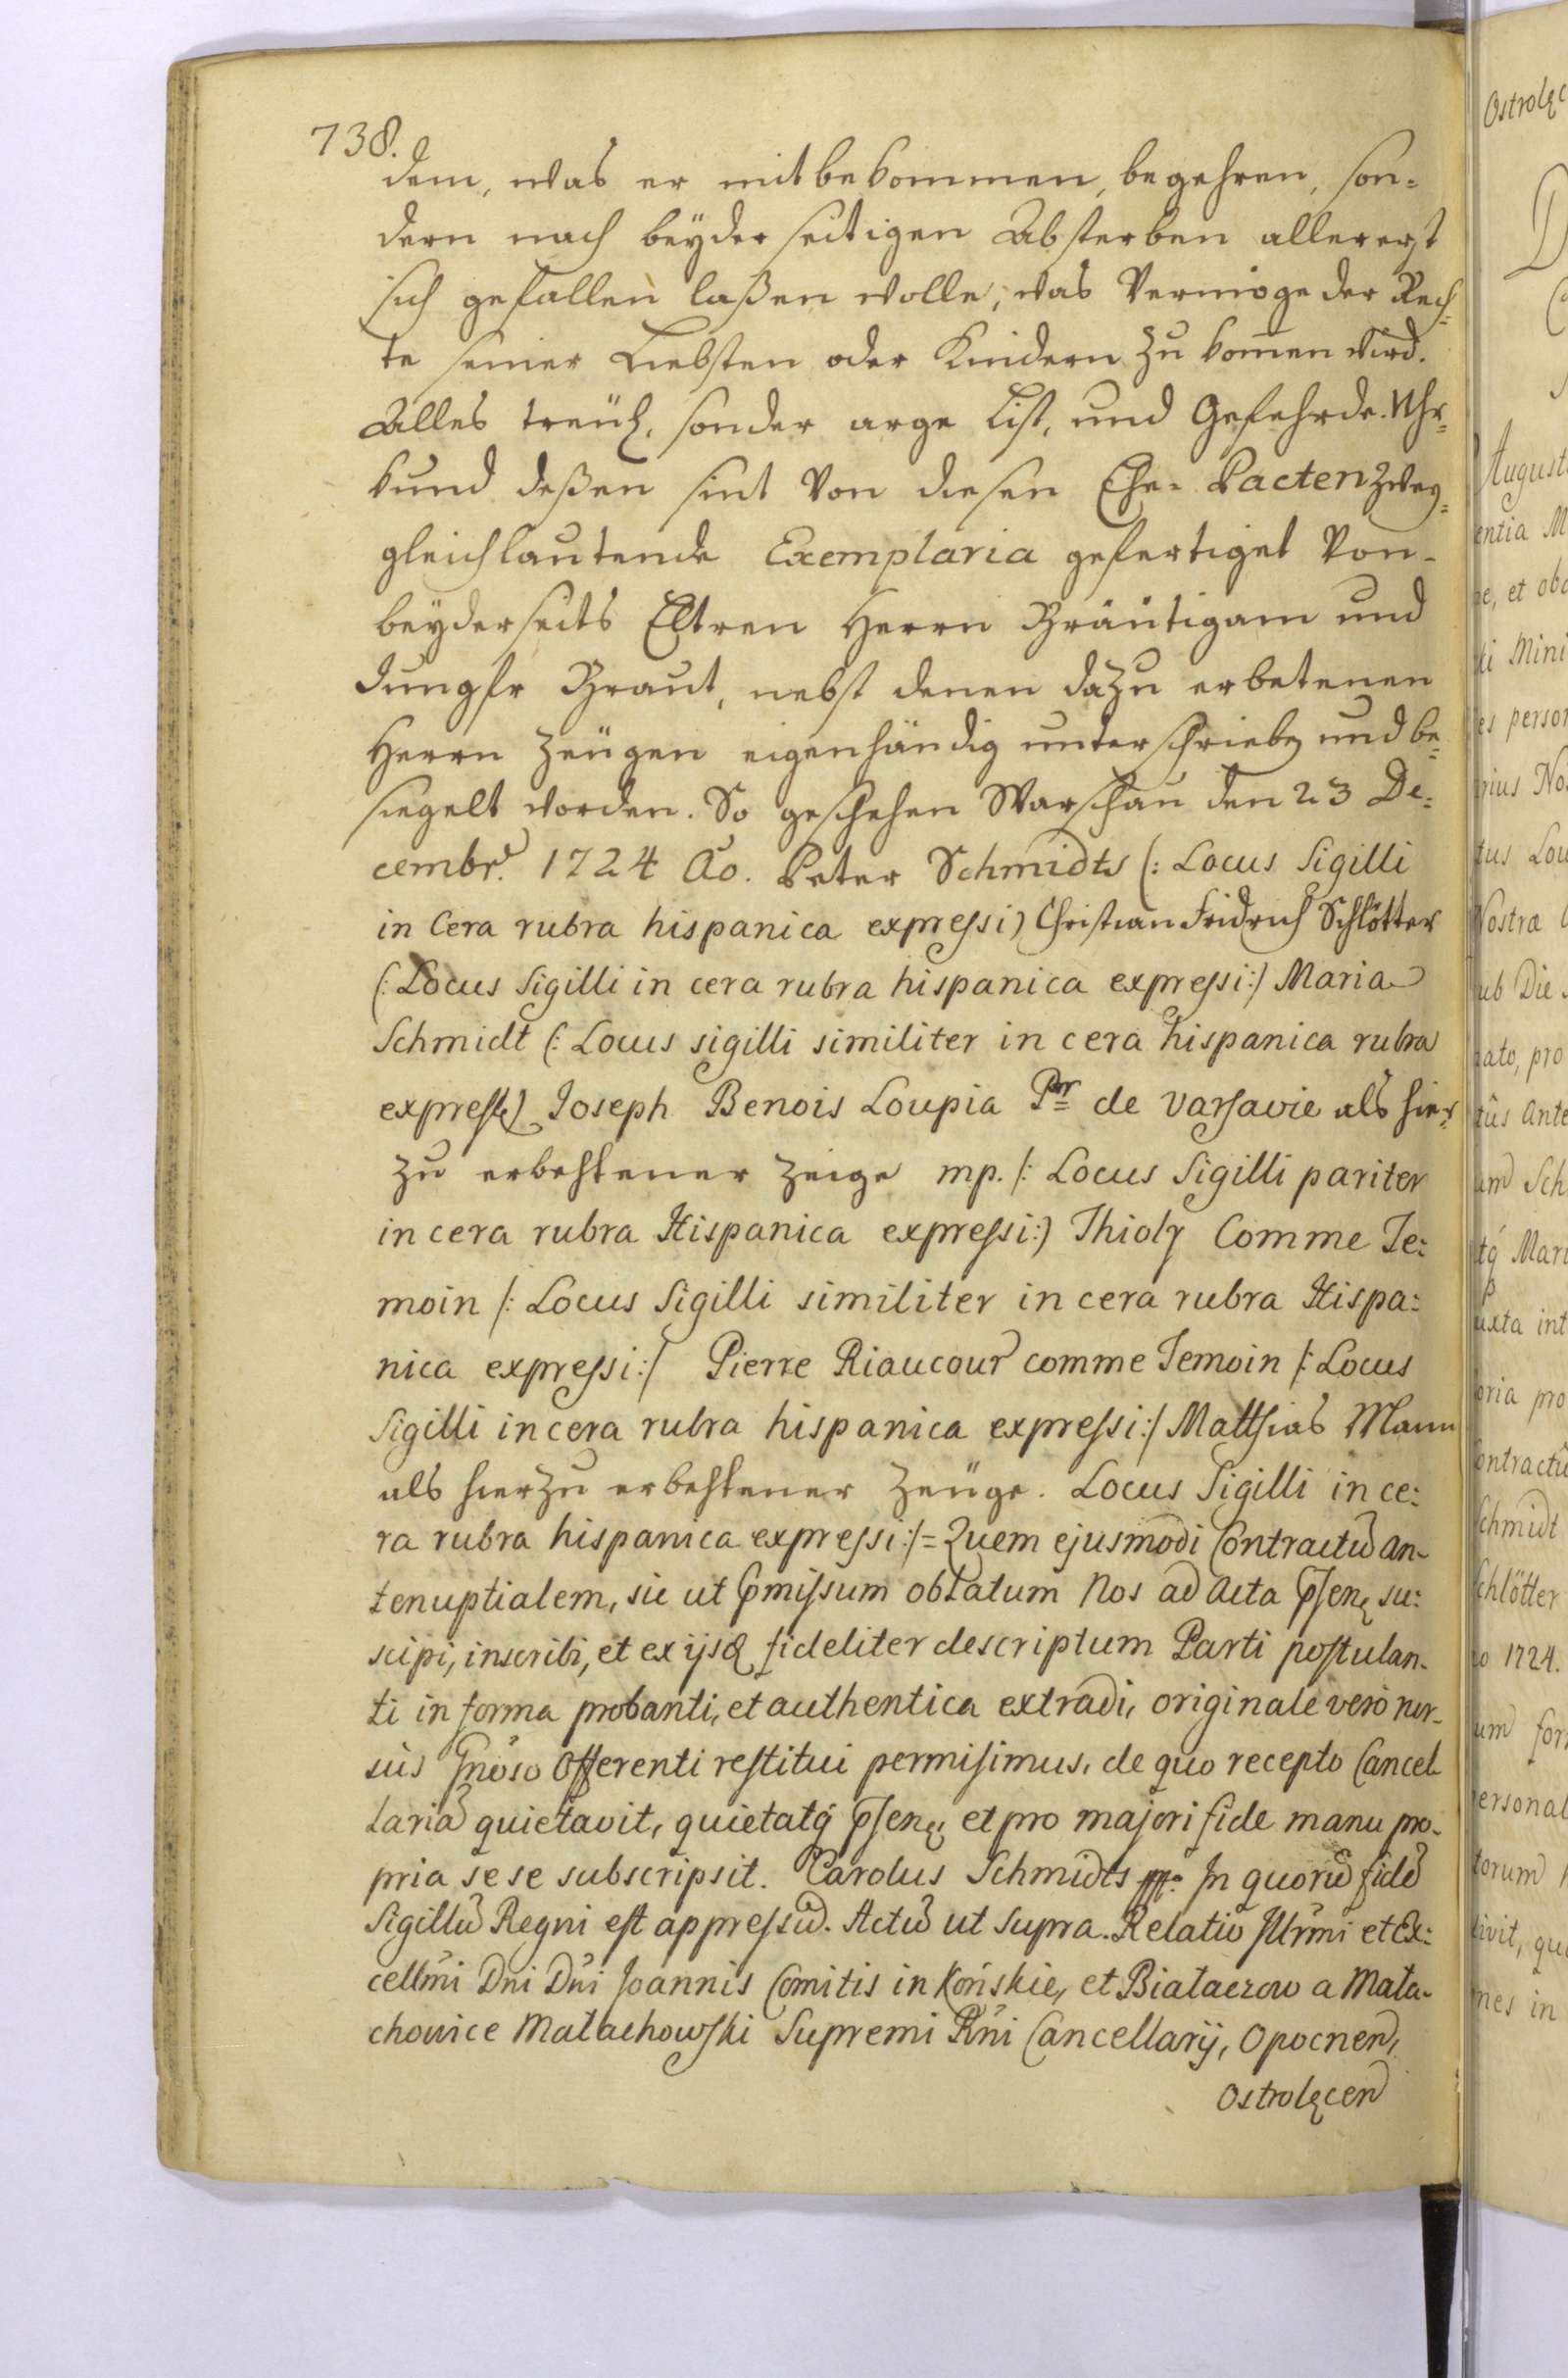 738.
dem, was er mitbekommen, begehren, son=
dern nach beÿderseitigen Absterben allererst
sich gefallen laßen wolle, was Vermöge der Rech=
te seiner Liebsten oder Kindern zu komen wird.
Alles treüh, sonder arge List, und Gefehrde. Uhr=
kund deßen sint Von diesen Ehe= Pacten zweÿ=
gleichlautende Exemplaria gefertiget Von-
beÿderseits Eltren Herrn Bräutigam und
Jungfr Braut, nebst denen dazu erbetenen
Herrn Zeügen eigenhändig unterschrieben und be=
siegelt worden. So geschehen Warschau den 23 De=
cembr. 1724 Ao. Peter Schmidts (: Locus Sigilli
in Cera rubra hispanica expressi) Christian Fridrich Schlötter
(: Locus Sigilli in cera rubra hispanica expressi:) Maria
Schmidt (: Locus sigilli similiter in cera hispanica rubra
express) Joseph Benois Loupia Pr de Varsavie als hier=
zu erbehtener Zeige mp. /: Locus Sigilli pariter
in cera rubra Hispanica expressi:) Thioly Comme Te=
moin /: Locus Sigilli similiter in cera rubra Hispa=
nica expressi:/ Pierre Riaucour comme Temoin /: Locus
Sigilli in cera rubra hispanica expressi:/ Matthias Mann
als hierzu erbehtener Zeüge. Locus Sigilli in ce=
ra rubra hispanica expressi:/= Quem ejusmodi Contractū an-
tenuptialem, sic ut p̄missum oblatum Nos ad Acta p̄sen̨ su=
scipi, inscribi, et ex ijsq̨ fideliter descriptum Parti postulan-
ti in forma probanti, et authentica extradi, originale verò rur-
sùs Gnōso Offerenti restitui permisimus, de quo recepto Cancel-
lariā quietavit, quietatq́ p̄sen̨, et pro majori fide manu pro-
pria sese subscripsit. Carolus Schmidts mp. In quorū fidē
Sigillū Regni est appressū. Actū ut supra. Relatio Illr̄mi et Ex=
cellm̄i Dn̄i Dn̄i Joannis Comitis in Końskie, et Białaczow a Mała-
chowice Małachowski Supremi Rn̄i Cancellarij, Opocnen̄,
Ostrolęcen̄
Ostrolęc
August
entia M
et obo
ti Mini
es person
rius No
tus Lou
Nostra
ub Die
nato, pro
tûs Ante
um Sch
tq́ Mari
uxta int
oria pro
ontractû
Schmidt
Schlötter
no 1724.
um for
personal
torum
tivit, qu
nes in